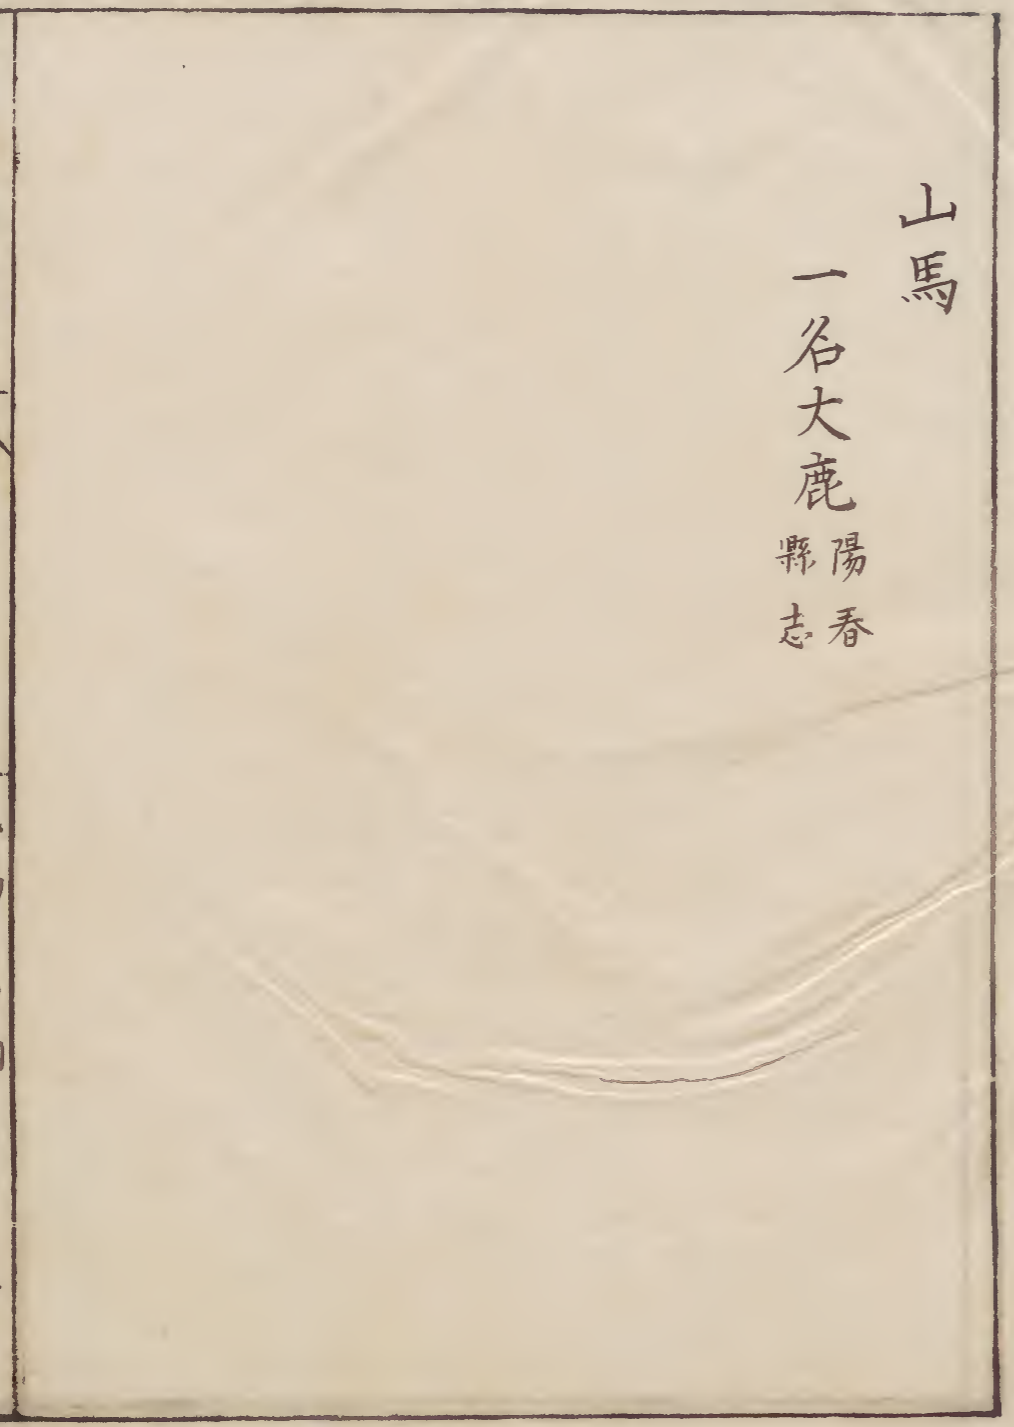 山馬
一名大鹿陽春縣志